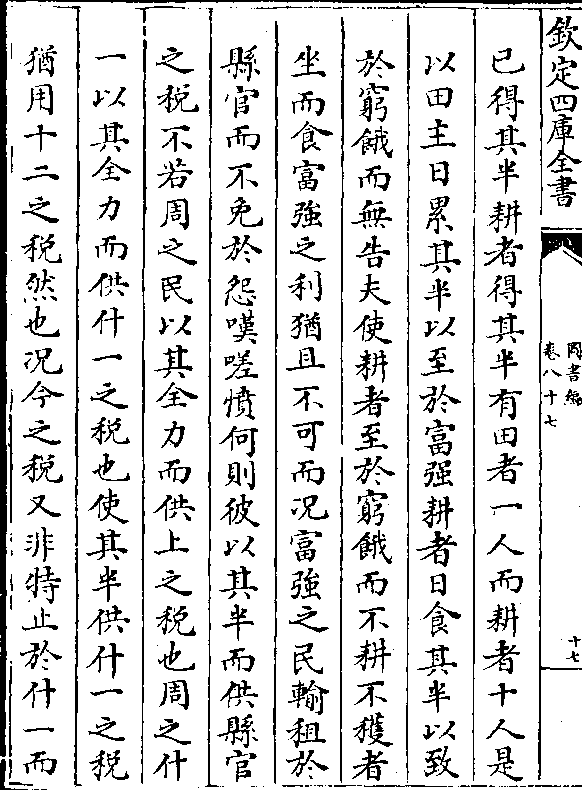 欽定四庫全書
圖書編
卷八十七
十七
已得其半耕者得其半有田者一人而耕者十人是
以田主日累其半以至於富强耕者日食其半以致
於窮餓而無告夫使耕者至於窮餓而不耕不獲者
坐而食富強之利猶且不可而况富強之民輸租於
縣官而不免於怨嘆嗟憤何則彼以其半而供縣官
之税不若周之民以其全力而供上之税也周之什
一以其全力而供什一之税也使其半供什一之税
猶用十二之税然也况今之税又非特止於什一而